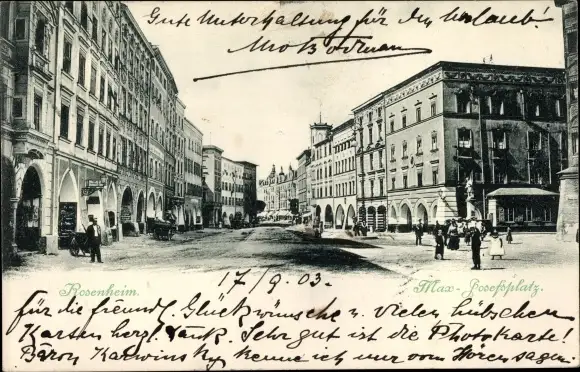 Gute Unterhaltung für den Urlaub!
Rosenheim.
Max-Josefsplatz.
17/9.03.
für die freundl. Glückwünsche u. vielen hübschen
Karten herzl. Dank. Sehr gut ist die Photokarte!
Baron Karwinsky kenne ich nur vom Hörensagen.